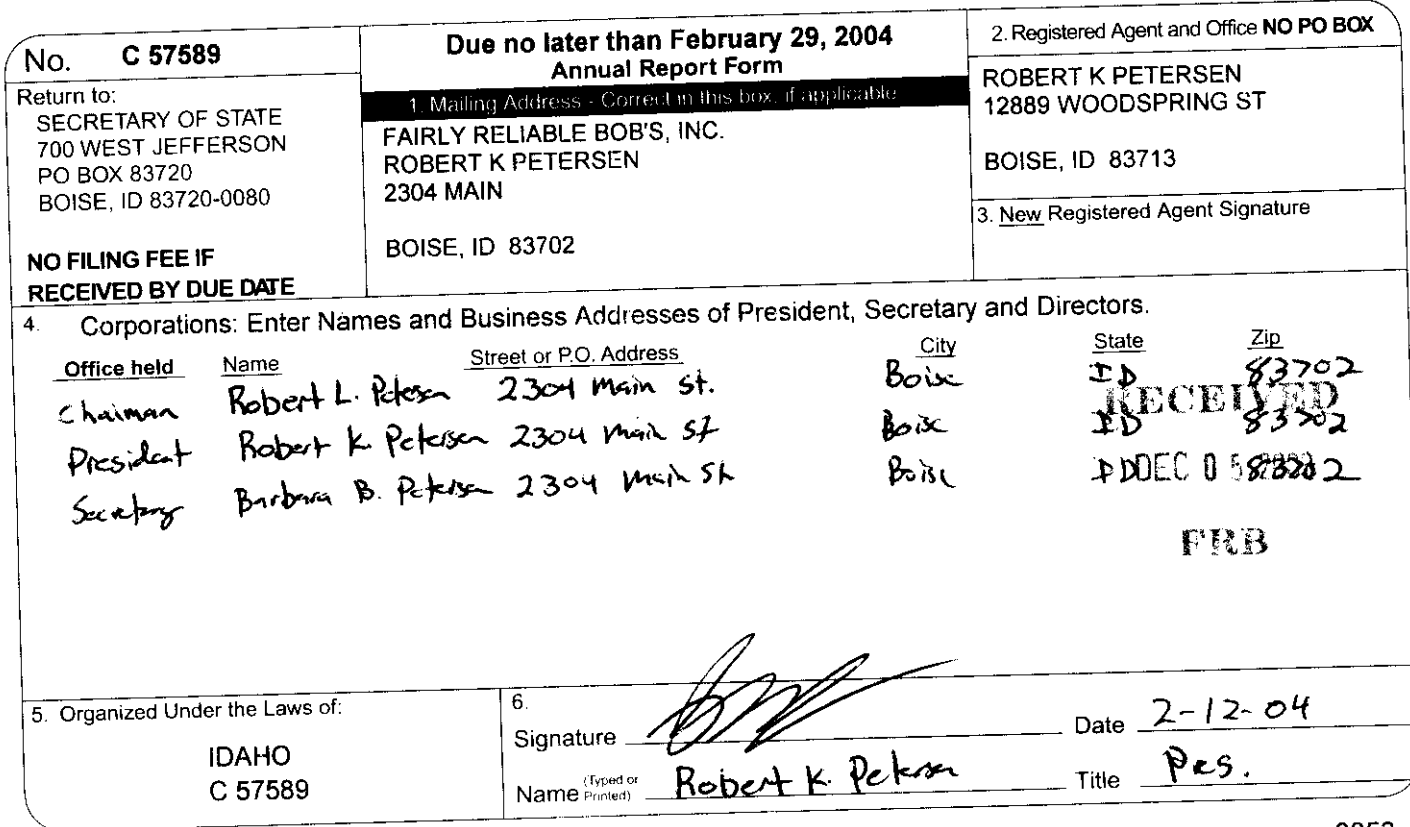 No. C 57589
Return to:
SECRETARY OF STATE
700 WEST JEFFERSON
PO BOX 83720
BOISE, ID 83720-0080
NO FILING FEE IF
RECEIVED BY DUE DATE
Due no later than February 29, 2004
Annual Report Form
1. Mailing Address - Correct in this box, if applicable
FAIRLY RELIABLE BOB'S, INC.
ROBERT K PETERSEN
2304 MAIN
BOISE, ID 83702
2. Registered Agent and Office NO PO BOX
ROBERT K PETERSEN
12889 WOODSPRING ST
BOISE, ID 83713
3. New Registered Agent Signature
4. Corporations: Enter Names and Business Addresses of President, Secretary and Directors.
Office held Name Street or P.O. Address City State Zip
Chaiman Robert L. Petersen 2304 Main St. Boise ID 83702
President Robert K. Petersen 2304 Main St Boise ID 83702
Secretary Barbara B. Petersen 2304 Main St Boise ID 83702
RECEIVED
DEC 05
FRB
5. Organized Under the Laws of:
IDAHO
C 57589
6.
Signature Date 2-12-04
Name (Typed or Printed) Robert K. Petersen Title Pres.